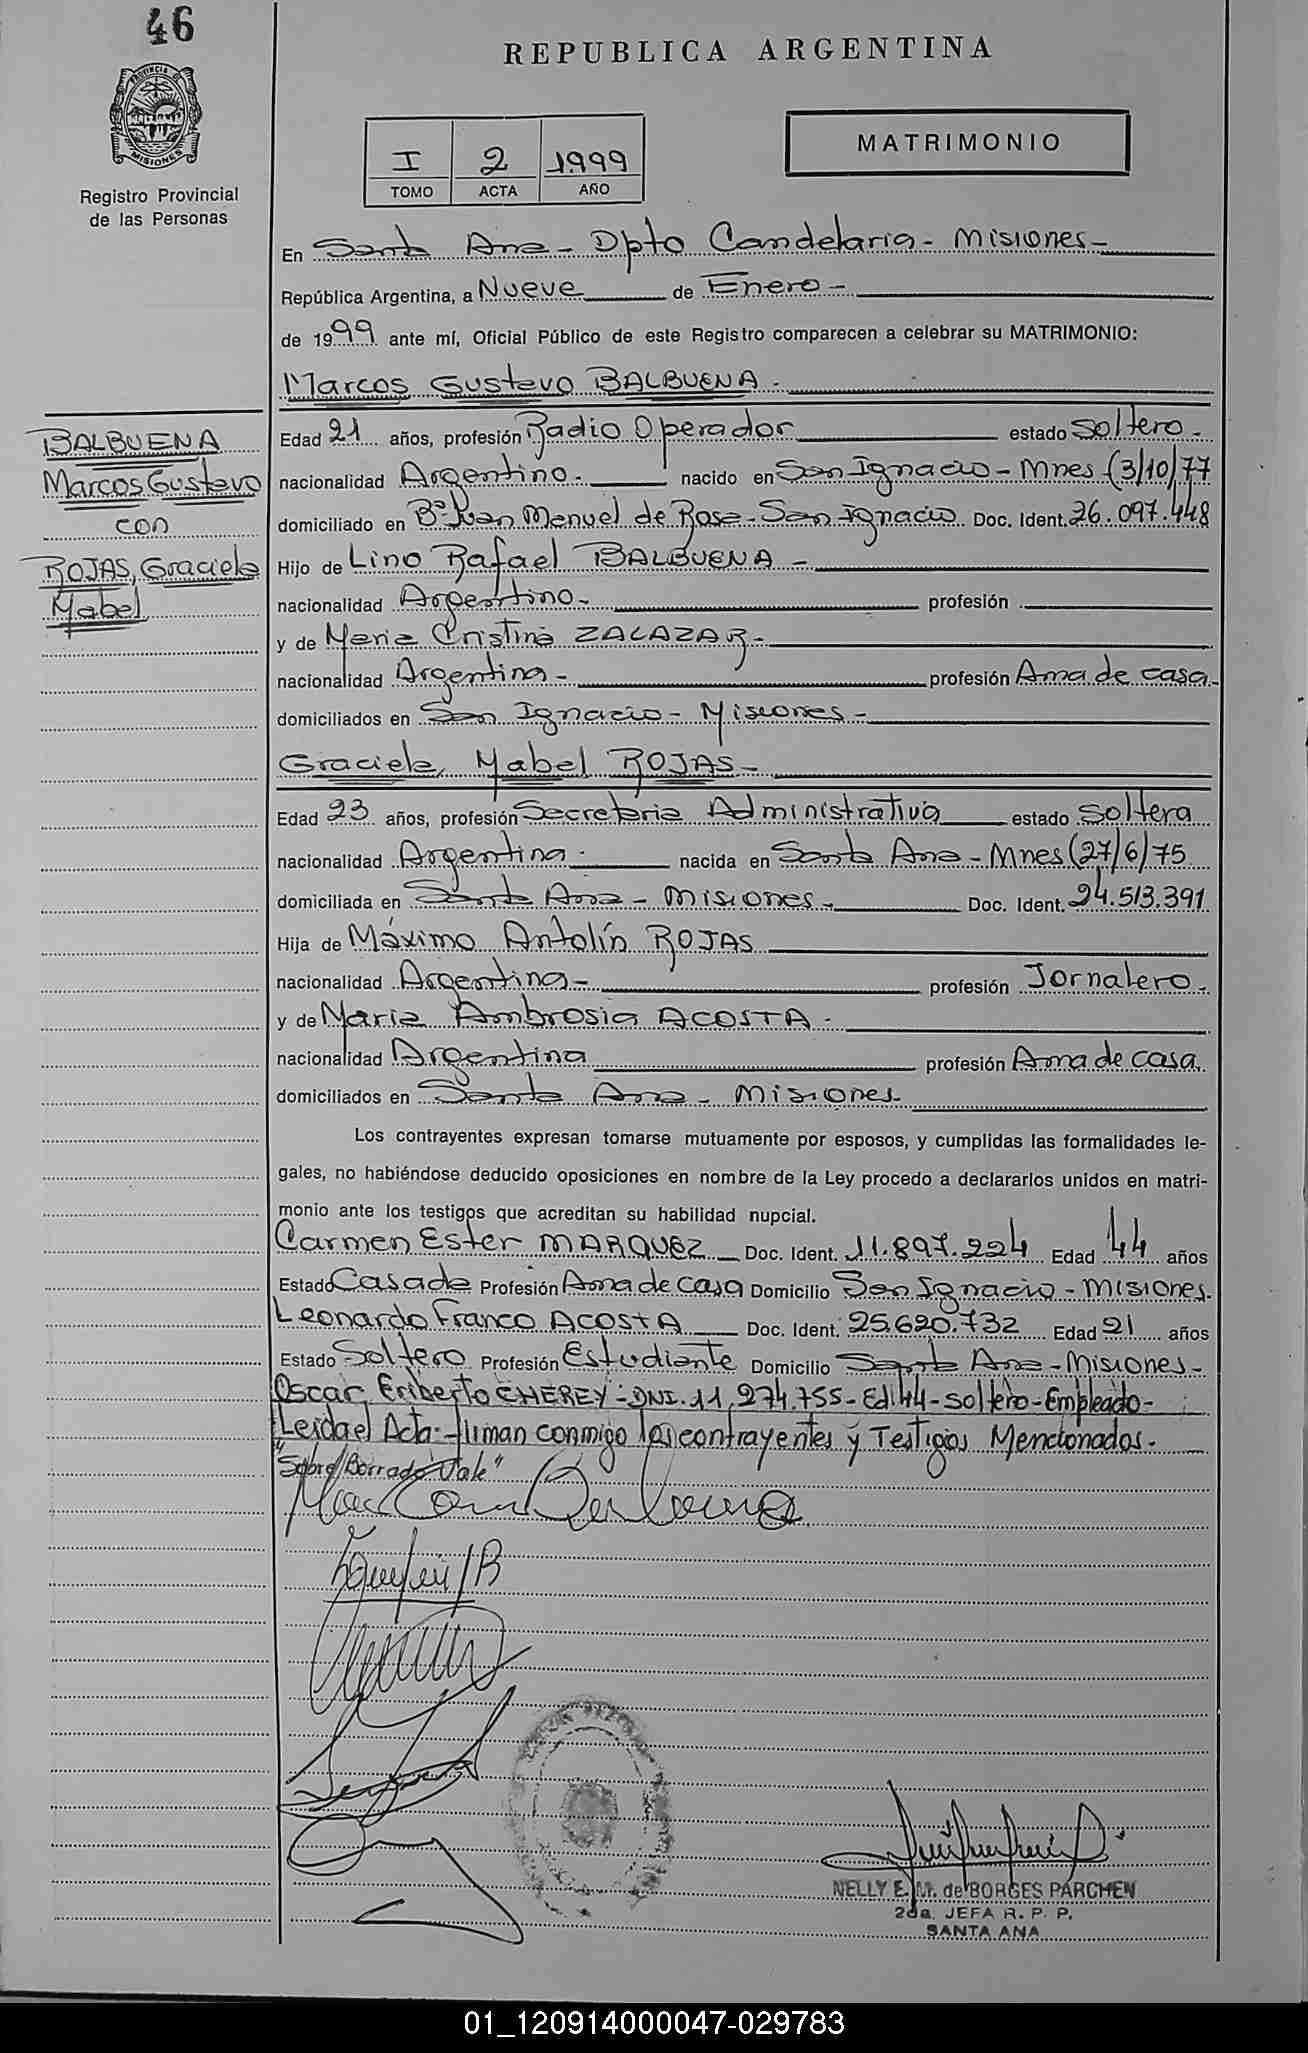 46
REPUBLICA ARGENTINA
PROVINCIA DE
MISIONES
Registro Provincial
de las Personas
I 2 1999
TOMO ACTA AÑO
MATRIMONIO
En Santa Ana - Dpto Candelaria - Misiones -
República Argentina, a Nueve de Enero -
de 1999 ante mí, Oficial Público de este Registro comparecen a celebrar su MATRIMONIO:
Marcos Gustavo BALBUENA -
BALBUENA
Marcos Gustavo
con
ROJAS, Graciela
Mabel
Edad 21 años, profesión Radio Operador estado Soltero -
nacionalidad Argentino - nacido en San Ignacio - Mnes (3/10/77
domiciliado en Bº Juan Manuel de Rosa - San Ignacio Doc. Ident. 26.097.448
Hijo de Lino Rafael BALBUENA -
nacionalidad Argentino - profesión
y de Maria Cristina ZALAZAR -
nacionalidad Argentina - profesión Ama de casa -
domiciliados en San Ignacio - Misiones -
Graciela Mabel ROJAS -
Edad 23 años, profesión Secretaria Administrativa estado Soltera
nacionalidad Argentina - nacida en Santa Ana - Mnes (27/6/75
domiciliada en Santa Ana - Misiones - Doc. Ident. 24.513.391
Hija de Máximo Antolín ROJAS
nacionalidad Argentina - profesión Jornalero -
y de Maria Ambrosia ACOSTA -
nacionalidad Argentina profesión Ama de casa.
domiciliados en Santa Ana - Misiones
Los contrayentes expresan tomarse mutuamente por esposos, y cumplidas las formalidades le-
gales, no habiéndose deducido oposiciones en nombre de la Ley procedo a declararlos unidos en matri-
monio ante los testigos que acreditan su habilidad nupcial.
Carmen Ester MARQUEZ Doc. Ident. 11.897.224 Edad 44 años
Estado Casada Profesión Ama de casa Domicilio San Ignacio - Misiones.
Leonardo Franco ACOSTA Doc. Ident. 25.620.732 Edad 21 años
Estado Soltero Profesión Estudiante Domicilio Santa Ana - Misiones -
Oscar Eriberto CHEREY - DNI. 11,274.755 - Ed. 44 - Soltero - Empleado -
Leida el Acta - firman conmigo los contrayentes y Testigos Mencionados -
"Sobre/Borrado Vale"
NELLY E. M. de BORGES PARCHEN
2da. JEFA R. P. P.
SANTA ANA
01_120914000047-029783